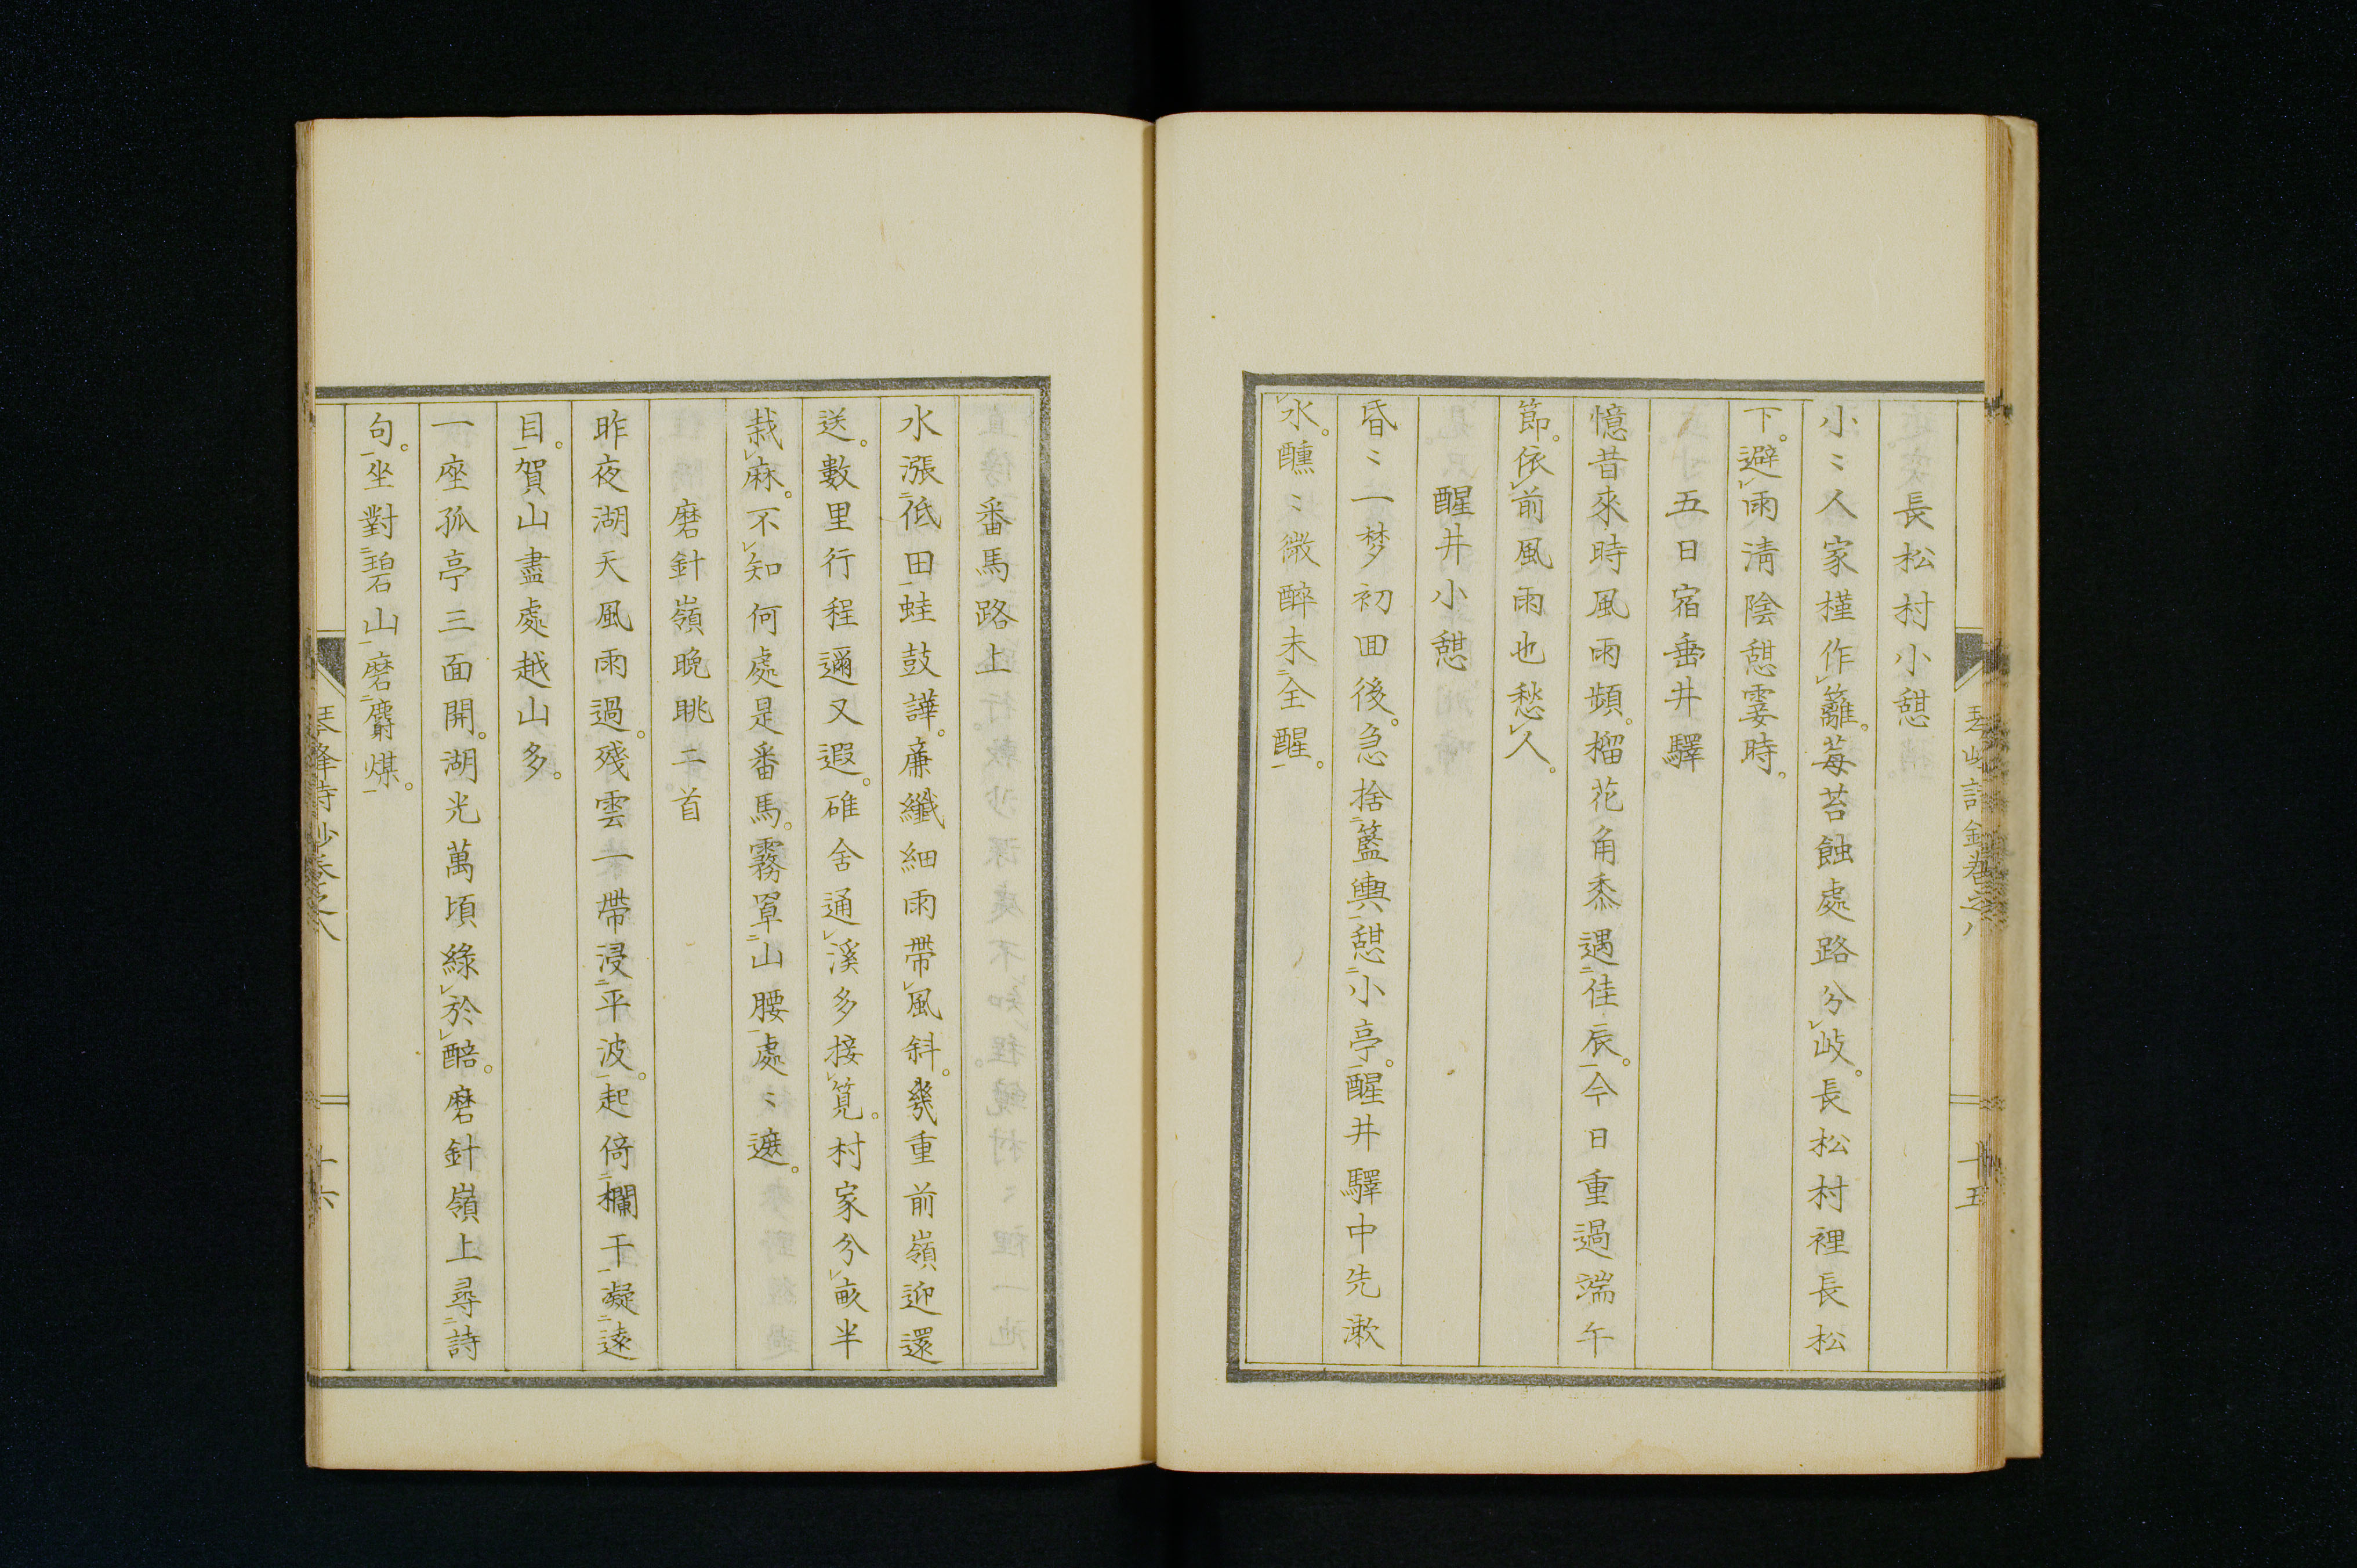 長松村小憩
小〻人家槿作籬。莓苔蝕處路分岐。長松村裡長松
下。避雨淸陰憩霎時。
五日宿垂井驛
憶昔來時風雨頻。榴花角黍遇佳辰。今日重過端午
節。依前風雨也愁人。
醒井小憩
昏〻一梦初回後。急捨籃輿憩小亭。醒井驛中先漱
水。醺〻微醉未全醒。
十五
番馬路上
水漲低田蛙鼓譁。廉纖細雨帶風斜。幾重前嶺迎還
送。數里行程邇又遐。碓舍通溪多接筧。村家分畝半
栽麻。不知何處是番馬。霧罩山腰處〻遮。
磨針嶺晚眺二首
昨夜湖天風雨過。殘雲一帶浸平波。起倚欄干凝遠
目。賀山盡處越山多。
一座孤亭三面開。湖光萬頃綠於醅。磨針嶺上尋詩
句。坐對碧山磨麝煤。
琴峰詩鈔卷之八
十六